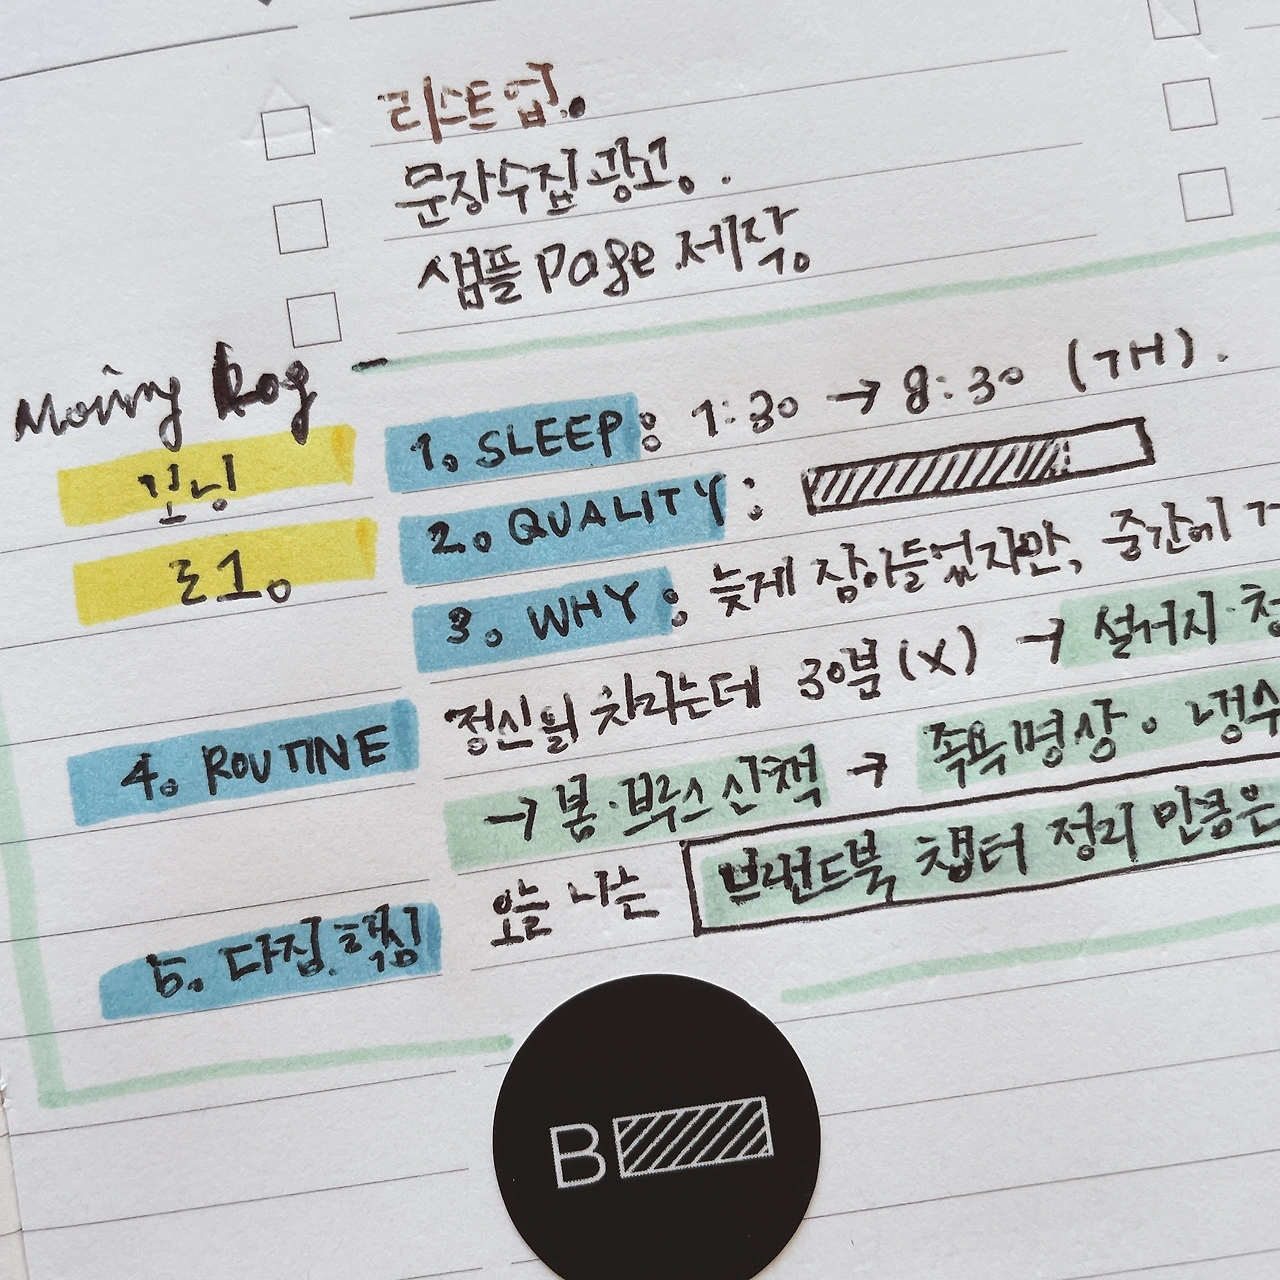 리스트업.
문장수집 광고. .
샘플 Page 제작.
Morning Log
모닝
로그.
1. SLEEP: 1:30 → 8:30 (7H).
2. QUALITY:
3. WHY: 늦게 잠이들었지만, 중간에
4. ROUTINE 정신을 차리는데 30분(X) → 설거지·청
→ 봄·브루스 산책 → 족욕명상. 냉수
5. 다짐.핵심 오늘 나는 브랜드북 챕터 정리 만큼은
B